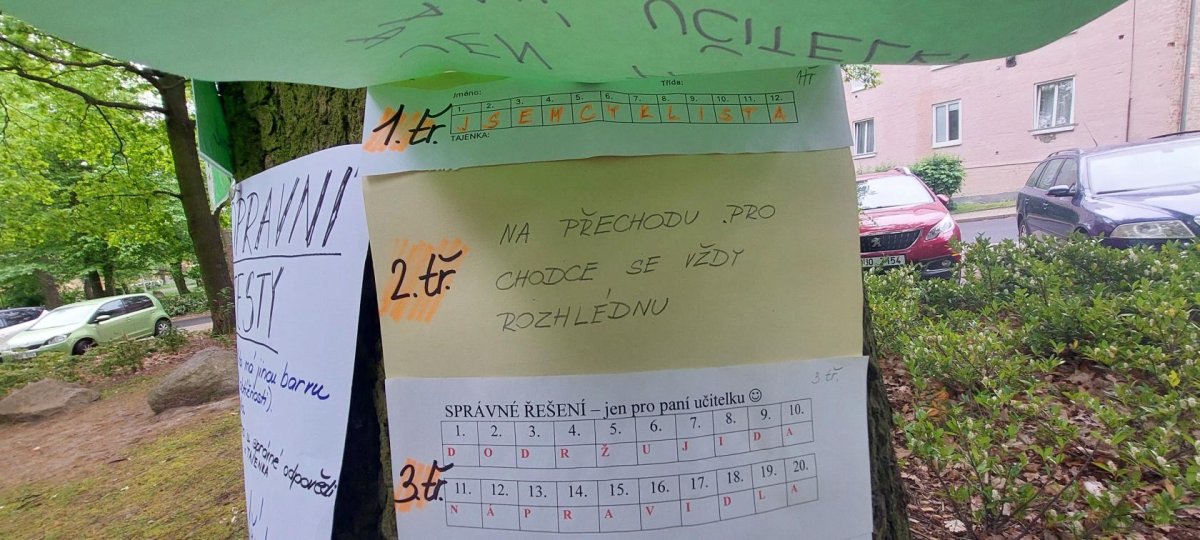 Jméno: Třída: 1.tř.
1. 2. 3. 4. 5. 6. 7. 8. 9. 10. 11. 12.
1.tř. J S E M C Y K L I S T A
TAJENKA:
2.tř. NA PŘECHODU PRO
CHODCE SE VŽDY
ROZHLÉDNU
3 tř.
SPRÁVNÉ ŘEŠENÍ – jen pro paní učitelku ☺
1. 2. 3. 4. 5. 6. 7. 8. 9. 10.
D O D R Ž U J I D A
3.tř. 11. 12. 13. 14. 15. 16. 17. 18. 19. 20.
N Á P R A V I D L A
PRAVNÍ
ESTY
má jinou barvu
správné odpovědi
TAJENKA